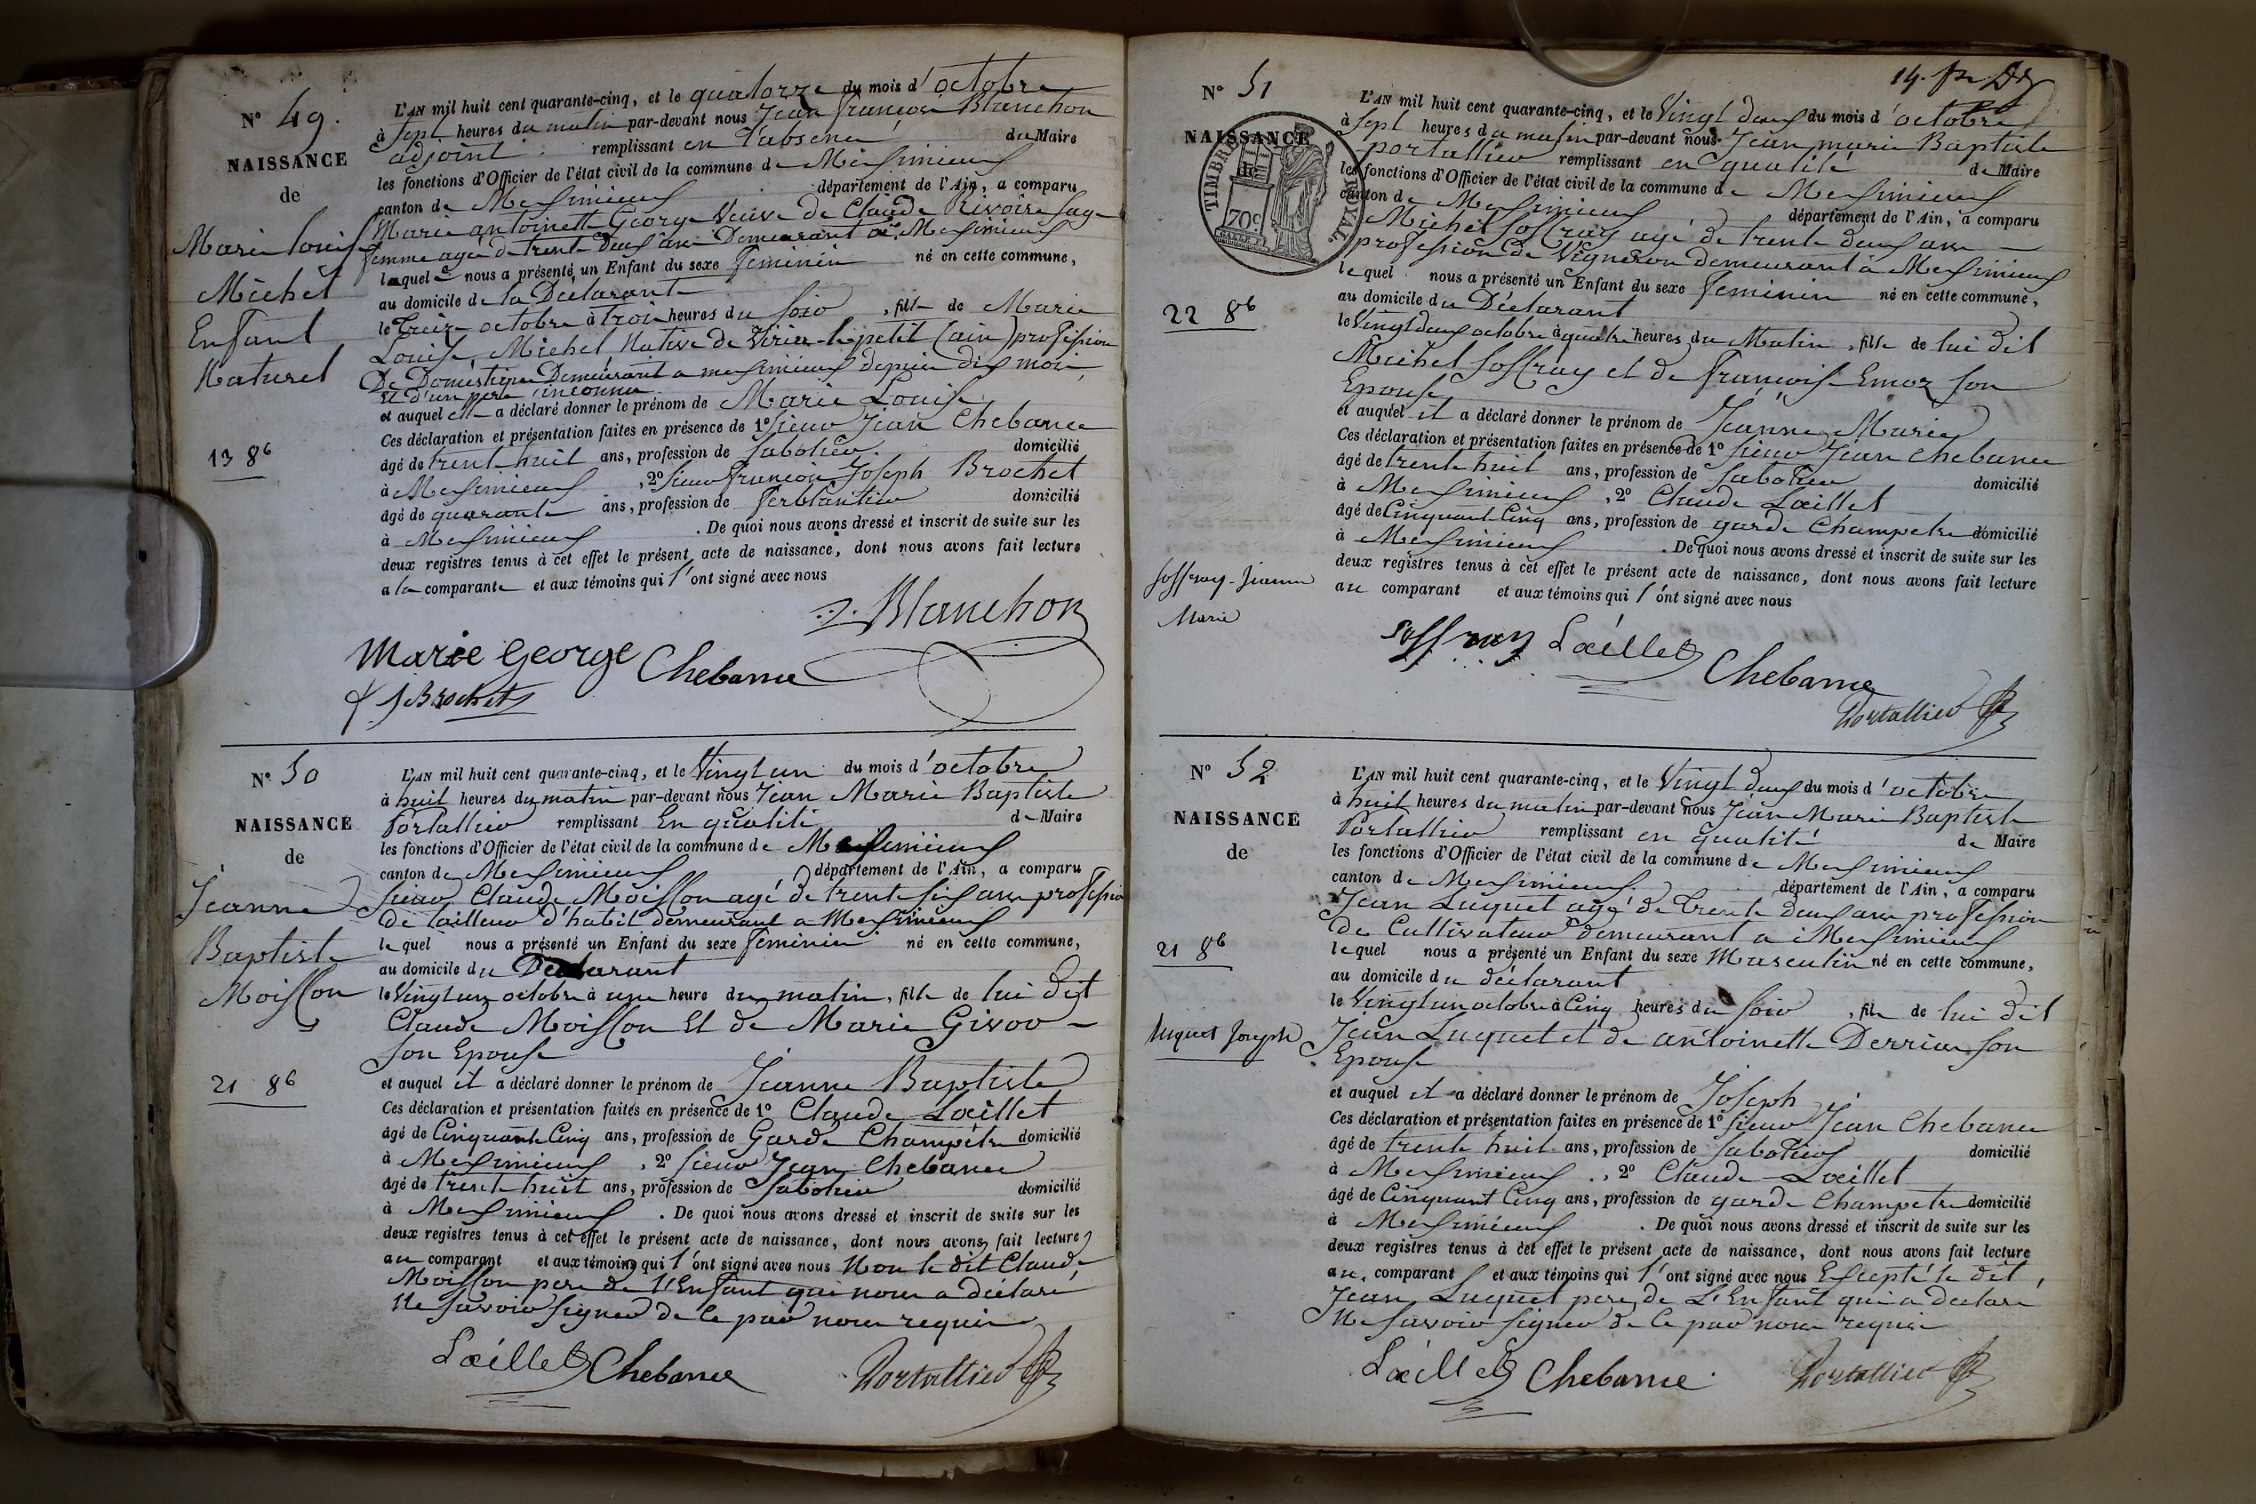 N° 49.
NAISSANCE
de
Marie Louise
Michel
Enfant
Naturel
13 8b
L'AN mil huit cent quarante-cinq, et le quatorze du mois d'octobre
à sept heures du matin par-devant nous Jean françois Blanchon
adjoint remplissant en l'absence du Maire
les fonctions d'Officier de l'état civil de la commune de Meximieux
canton de Meximieux département de l'Ain, a comparu
Marie antoinette George Veuve de Claude Rivoire sage
femme agée de trente deux ans Demeurant à Meximieux
laquelle nous a présenté un Enfant du sexe feminin né en cette commune,
au domicile de la Déclarante
le Treize octobre à trois heures du soir, fille de Marie
Louise Michel Native de Viriat-le-petit (ain) profession
De Domestique Demeurant a meximieux depuis dix mois
et d'un père inconnu
et auquel elle a déclaré donner le prénom de Marie Louise
Ces déclaration et présentation faites en présence de 1° sieur Jean Chebance
âgé de trente huit ans, profession de Sabotier domicilié
à Meximieux, 2° sieur françois Joseph Brochet
âgé de quarante ans, profession de ferblantier domicilié
à Meximieux. De quoi nous avons dressé et inscrit de suite sur les
deux registres tenus à cet effet le présent acte de naissance, dont nous avons fait lecture
a la comparante et aux témoins qui l'ont signé avec nous
Blanchon
Marie George Chebance
f J Brochet
N° 50
NAISSANCE
de
Jeanne
Baptiste
Moisson
21 8b
L'AN mil huit cent quarante-cinq, et le Vingt un du mois d'octobre
à huit heures du matin par-devant nous Jean Marie Baptiste
Portallier remplissant En qualité de Maire
les fonctions d'Officier de l'état civil de la commune de Meximieux
canton de Meximieux département de l'Ain, a comparu
sieur Claude Moisson agé de trente six ans profession
de tailleur d'habit demeurant a Meximieux
lequel nous a présenté un Enfant du sexe feminin né en cette commune,
au domicile du Déclarant
le Vingt un octobre à une heure du matin, fille de lui dit
Claude Moisson Et de Marie Girod
son Epouse
et auquel il a déclaré donner le prénom de Jeanne Baptiste
Ces déclaration et présentation faites en présence de 1° Claude Lœillet
âgé de Cinquante Cinq ans, profession de Garde Champêtre domicilié
à Meximieux, 2° sieur Jean Chebance
âgé de trente huit ans, profession de Sabotier domicilié
à Meximieux. De quoi nous avons dressé et inscrit de suite sur les
deux registres tenus à cet effet le présent acte de naissance, dont nous avons fait lecture
au comparant et aux témoins qui l'ont signé avec nous Non le dit Claude
Moisson pere de l'Enfant qui nous a déclaré
Ne savoir signer de ce par nous requis
Lœillet Chebance Portallier
N° 51
NAISSANCE
de
TIMBRE ROYAL.
70c
22 8b
Soffray-Jeanne
Marie
L'AN mil huit cent quarante-cinq, et le Vingt deux du mois d'octobre
à sept heures du matin par-devant nous Jean marie Baptiste
portallier remplissant en qualité de Maire
les fonctions d'Officier de l'état civil de la commune de Meximieux
canton de Meximieux département de l'Ain, a comparu
Michel Soffray agé de trente deux ans
profession de Vigneron demeurant à Meximieux
lequel nous a présenté un Enfant du sexe feminin né en cette commune,
au domicile du Déclarant
le Vingt deux octobre à quatre heures du Matin, fille de lui dit
Michel Soffray et de françoise Emoz son
Epouse
et auquel il a déclaré donner le prénom de Jeanne Marie
Ces déclaration et présentation faites en présence de 1° sieur Jean Chebance
âgé de trente huit ans, profession de Sabotier domicilié
à Meximieux, 2° Claude Lœillet
âgé de Cinquante Cinq ans, profession de garde Champetre domicilié
à Meximieux. De quoi nous avons dressé et inscrit de suite sur les
deux registres tenus à cet effet le présent acte de naissance, dont nous avons fait lecture
au comparant et aux témoins qui l'ont signé avec nous
Soffray Lœillet
Chebance
Portallier
N° 52
NAISSANCE
de
21 8b
Luquet Joseph
L'AN mil huit cent quarante-cinq, et le Vingt deux du mois d'octobre
à huit heures du matin par-devant nous Jean Marie Baptiste
Portallier remplissant en qualité de Maire
les fonctions d'Officier de l'état civil de la commune de Meximieux
canton de Meximieux département de l'Ain, a comparu
Jean Luquet agé de Trente deux ans profession
de Cultivateur demeurant a Meximieux
lequel nous a présenté un Enfant du sexe Masculin né en cette commune,
au domicile du déclarant
le Vingt un octobre à Cinq heures du soir, fils de lui dit
Jean Luquet et de antoinette Derriaz son
Epouse
et auquel il a déclaré donner le prénom de Joseph
Ces déclaration et présentation faites en présence de 1° sieur Jean Chebance
âgé de trente huit ans, profession de Sabotier domicilié
à Meximieux, 2° Claude Lœillet
âgé de Cinquante Cinq ans, profession de garde Champetre domicilié
à Meximieux. De quoi nous avons dressé et inscrit de suite sur les
deux registres tenus à cet effet le présent acte de naissance, dont nous avons fait lecture
au comparant et aux témoins qui l'ont signé avec nous Excepté le dit
Jean Luquet pere de L'Enfant qui a declaré
Ne savoir signer de ce par nous requis
Lœillet Chebance Portallier